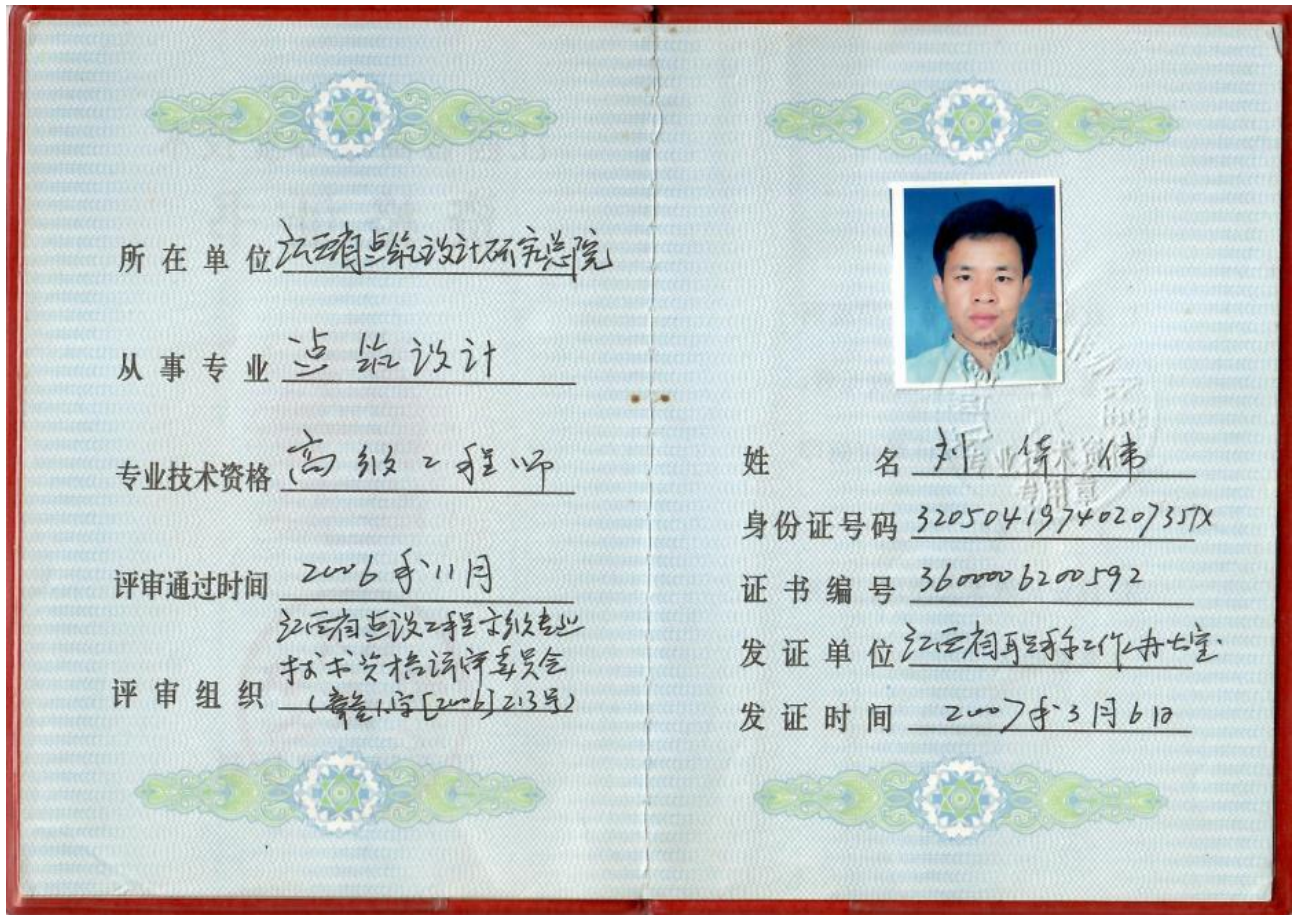 所在单位 江西省建筑设计研究总院
从事专业 建筑设计
专业技术资格 高级工程师
评审通过时间 2006年11月
江西省建设工程高级专业
技术资格评审委员会
评审组织 字[2006]213号)
姓名 刘 伟
身份证号码 32050419740207351X
证书编号 3600006200592
发证单位 江西省职称工作办公室
发证时间 2007年3月6日
专业技术资格
专用章